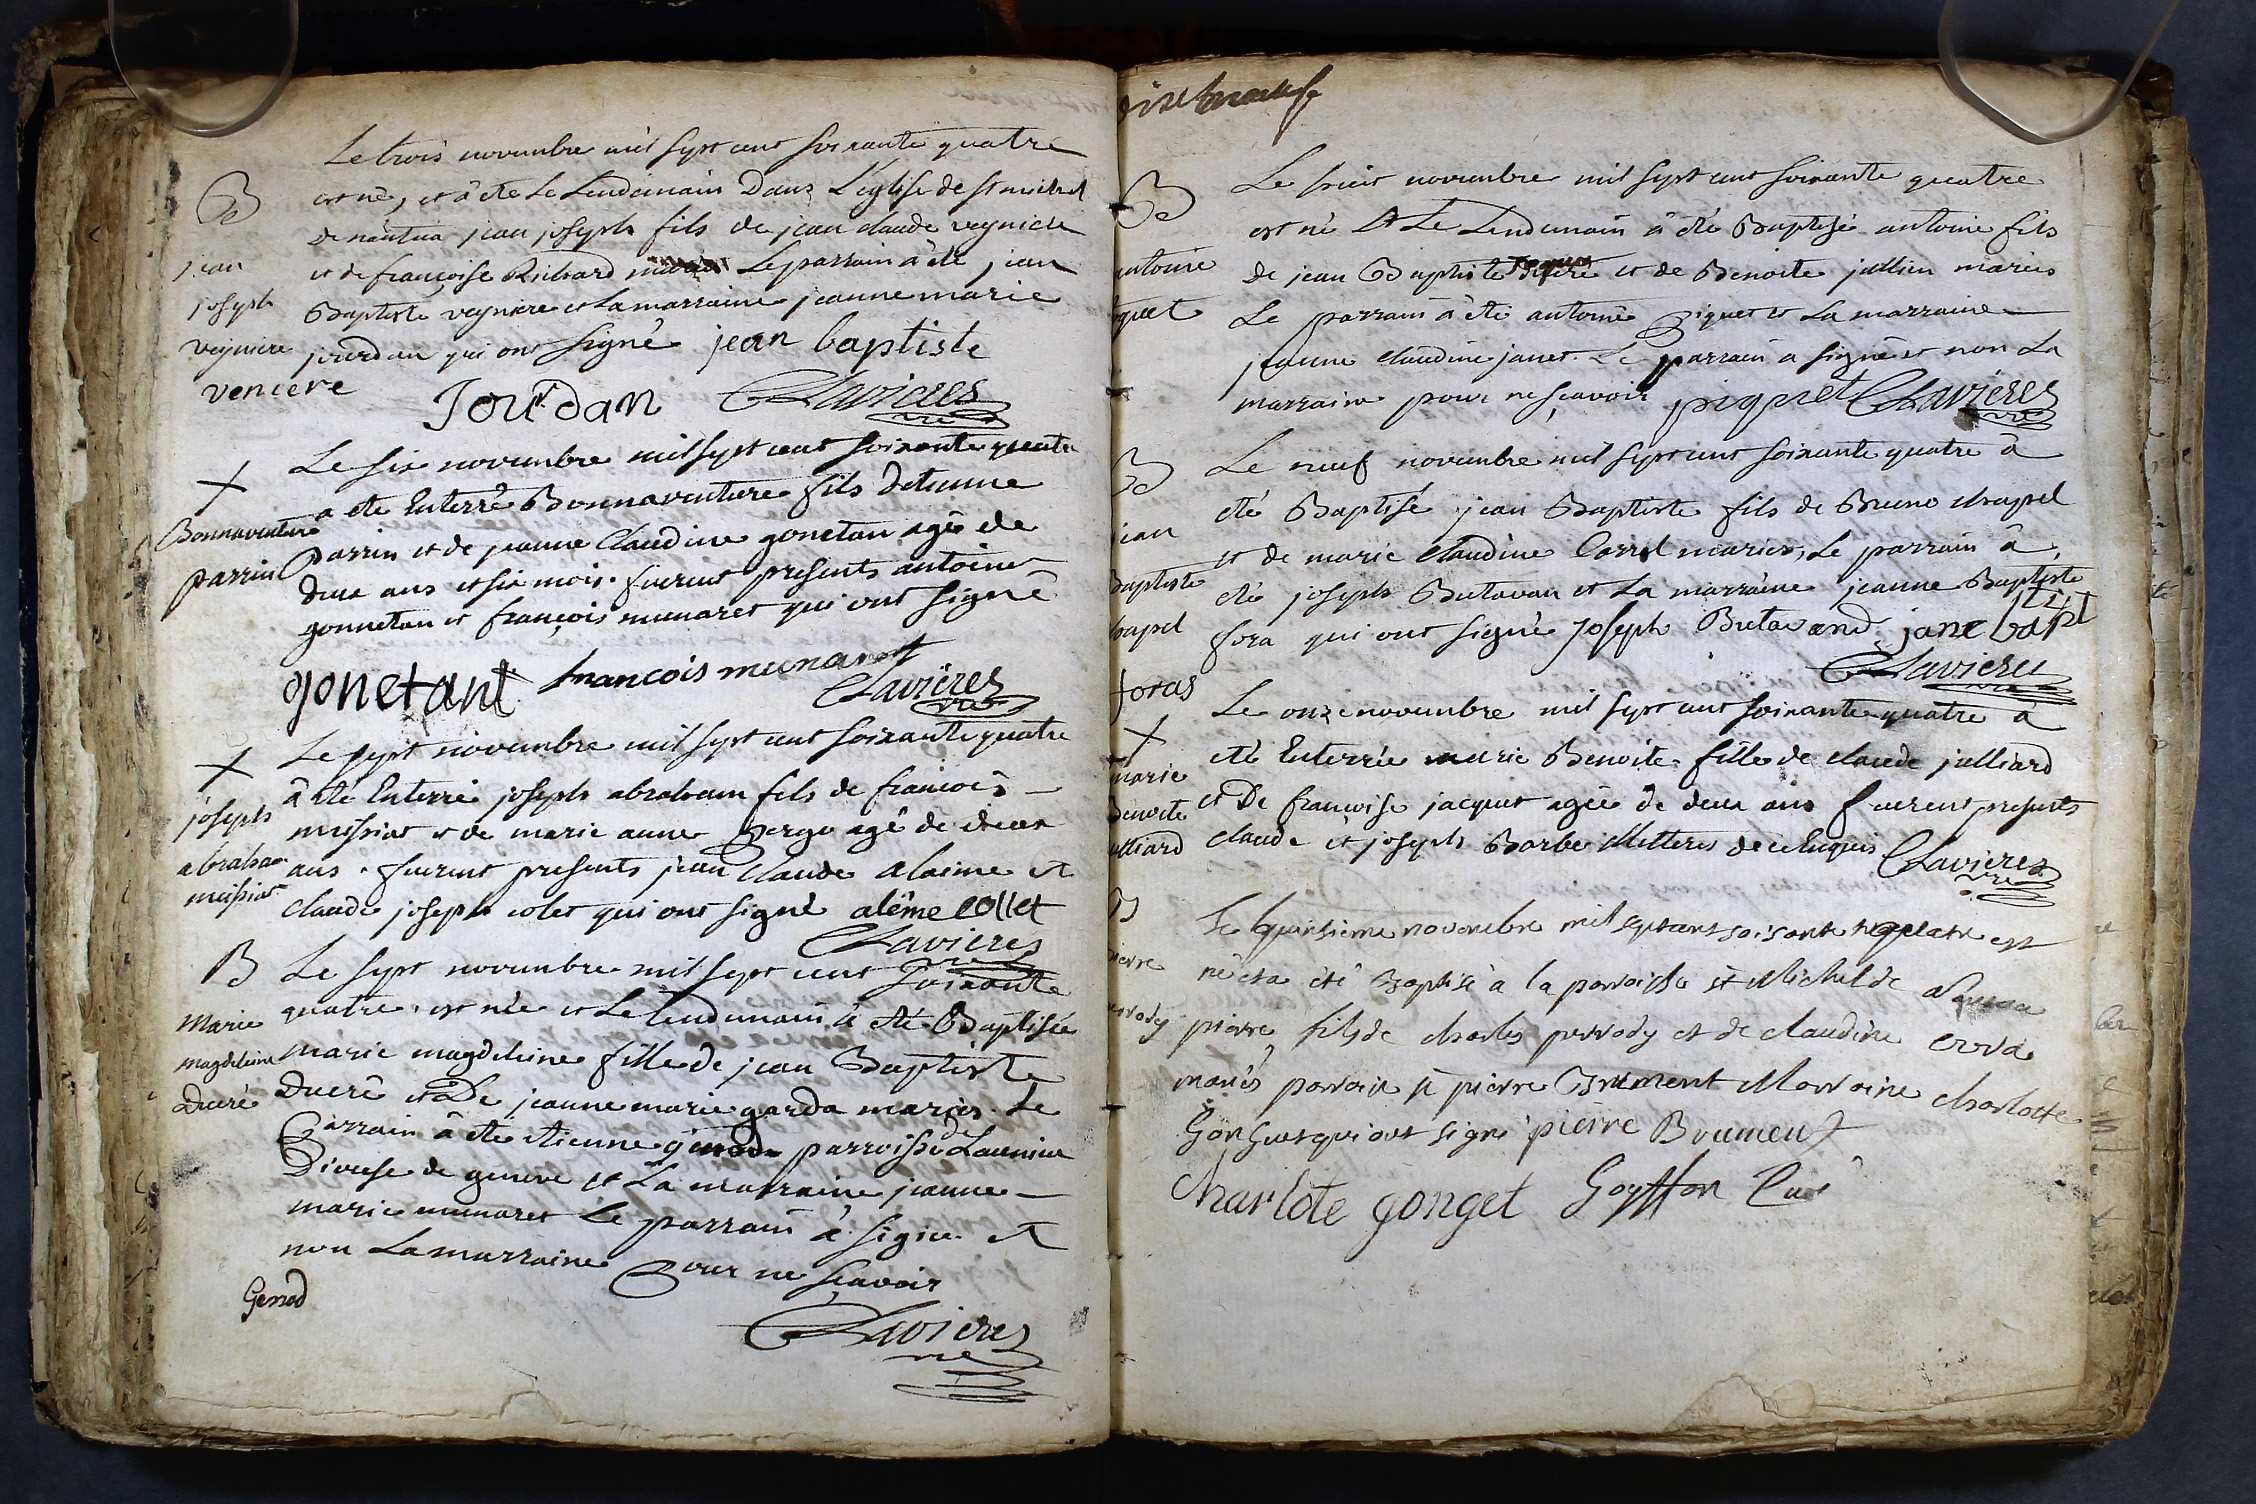 Le trois novembre mil sept cent soixante quatre
est né, et à été Le Lendemain Dans L'église de st michel
de nantua jean joseph fils de jean claude veyniere
et de françoise Richard mariés Le parrain à été jean
Baptiste veyniere et La marraine jeanne marie
jourdan qui ont signé jean baptiste
B
jean
joseph
veyniere
veniere
Jourdan Clavieres vre
Le six novembre mil sept cent soixante quatre
a été Enterré Bonnaventure fils detienne
Parrin et de jeanne Claudine gonetan agé de
deux ans et six mois. furent presents antoine
gonnetan et françois munaret qui ont signé
Bonnaventure
parrin
gonetant francois munaret
Clavieres vre
Le sept novembre mil sept cent soixante quatre
à été Enterré joseph abraham fils de francois
missiat et de marie anne Berge agé de deux
ans. furent presents jean Claude alaime et
claude joseph colet qui ont signé aléme Collet
joseph
abraham
missiat
Clavieres
B
Le sept novembre mil sept cent soixante
quatre. est née et Le Lendemain à été Baptisée
marie magdeleine fille de jean Baptiste
Ducré et De jeanne marie garda mariés. Le
Parrain à été etienne genod parroisse de
Diocese de geneve et La marraine jeanne
marie munaret Le parrain à signé et
non La marraine Pour ne sçavoir
Marie
magdeleine
Ducré
Genod
Clavieres
vre
B
Le huit novembre mil sept cent soixante quatre
est né et Le Lendemain à été Baptisé antoine fils
de jean Baptiste piquet et de Benoite jullien mariés
Le parrain à été antoine Piquet et La marraine
jeanne claudine janet. Le parrain a signé et non La
marraine pour ne sçavoir piquet Clavieres vre
antoine
B
Le neuf novembre mil sept cent soixante quatre à
été Baptisé jean Baptiste fils de Bruno chapel
et de marie claudine Carrel mariés, Le parrain à
été joseph Butavan et La marraine jeanne Baptiste
fora qui ont signé Joseph Butavand jane bapt
jean
baptiste
chapel
foras
Clavieres
Le onze novembre mil sept cent soixante quatre à
été Enterrée marie Benoite fille de claude julliard
et De francoise jacquet agée de deux ans furent presents
claude et joseph Barbe illitteres de ce Enquis Clavieres vre
marie
Benoite
julliard
B
Le quinsieme novembre mil septcent soisante et quatre est
né et a été Baptisé à la parroisse st Michel de Nantua
pierre fils de charles perrody et de claudine
mariés parrain sr pierre Brument Marraine charlotte
Gonguet qui ont signé pierre Brument
pierre
perrody
Charlote gonget Goyffon Curé